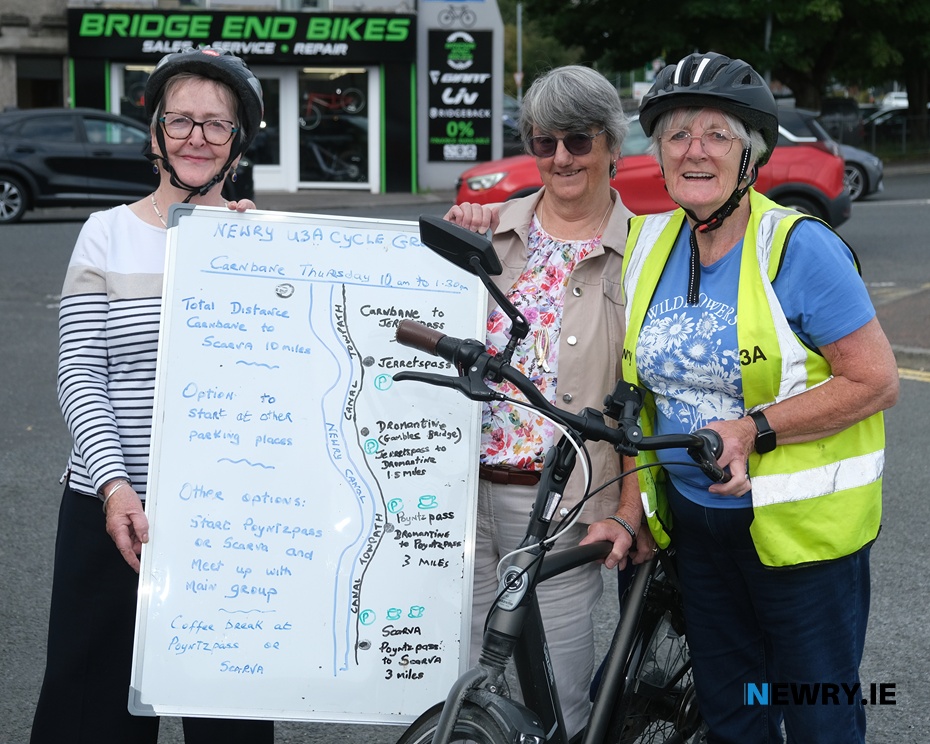 BRIDGE END BIKES
SALES • SERVICE • REPAIR
GIANT
Liv
RIDGEBACK
0%
NEWRY U3A CYCLE GR
CARNBANE THURSDAY 10 am to 1.30pm
Total Distance
CARNBANE to
SCARVA 10 miles
Option to
start at other
parking places
Other options:
Start Poyntzpass
or Scarva and
Meet up with
Main group
Coffee break at
Poyntzpass or
SCARVA
NEWRY CANAL
CANAL TOWPATH
CANAL TOWPATH
CARNBANE to
JERRETSPASS
JERRETSPASS
P
DROMANTINE
(Gambles Bridge)
P
Jerretspass to
DROMANTINE
1.5 miles
P
Poyntzpass
DROMANTINE
to Poyntzpass
3 MILES
P
SCARVA
Poyntzpass
to SCARVA
3 miles
WILDFLOWERS
3A
NEWRY.IE